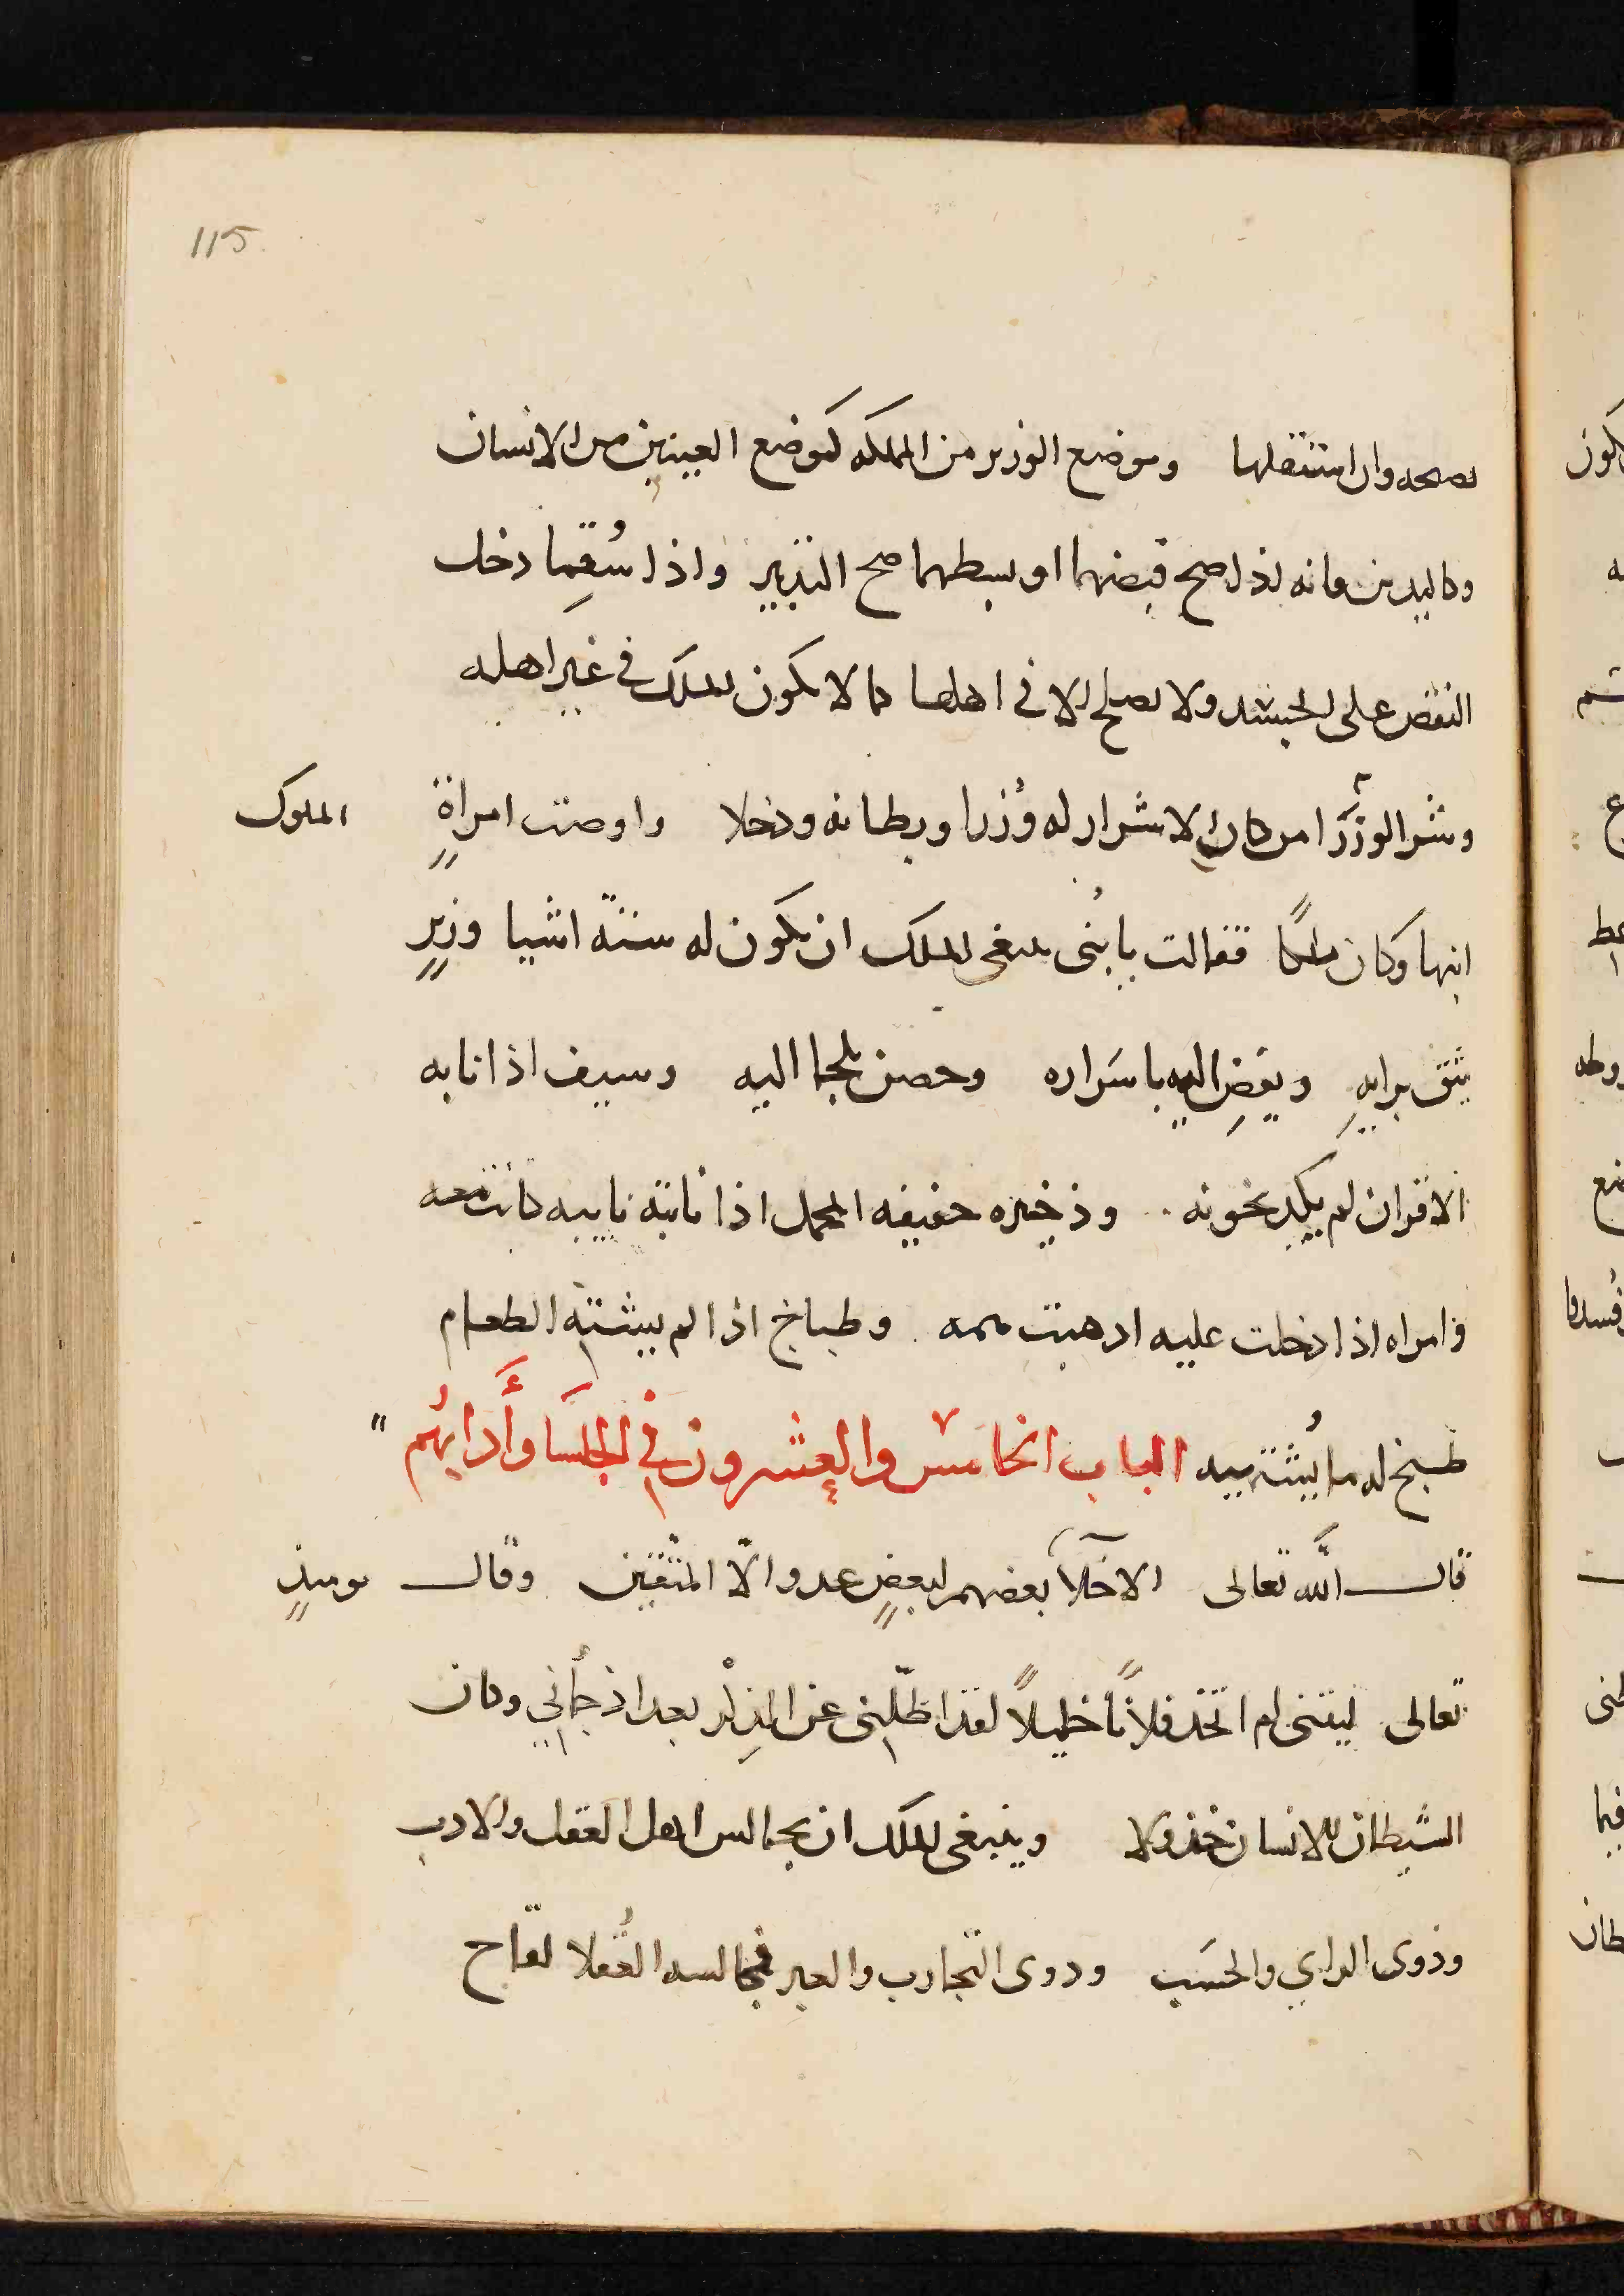 115
نصحه وان استثقلها وموضع الوزير من المملكه كموضع العينين من الانسان
وكاليدين فانه اذا صح قبضهما او بسطهما صح التدبير واذا سُقِما دخل
النقص على الجسد ولا تصلح الا في اهلها كما لا يكون الملك في غير اهله
وشر الوُزَرا من كان الاشرار له وُزرا وبطانه ودخلا واوصت امراةٍ الملوك
ابنها وكان ملكًا فقالت يا بُنى ينبغى للملك ان يكون له ستة اشيا وزيرٍ
يثق برايهِ ويفضِ اليه باسَراره وحصن يلجا اليه وسيف اذا نابه
الاقران لم يكد يخونه وذخيره خفيفه المحمل اذا نابته نايبه كانت معه
وامراه اذا دخلت عليه اذهبت همه وطباخ اذا لم يشته الطعام
طبخ له ما يُشتهيه الباب الخامس والعشرون في الجلسَاء وأَدابهُم
قال اللَّه تعالى الاخلآءُ بعضهم لبعضٍ عدو الّا المتّقين وقال يوميذٍ
تعالى ليتنى لم اتخذ فلانًا خليلًا لقد اظلّنى عن الذِكْر بعد اذ جأَني وكان
الشيطان للانسان خذولا وينبغى للملك ان يجالس اهل العقل والادب
وذوى الراي والحسَب وذوى التجارب والعبر فمجالسه العُقلا لقاح